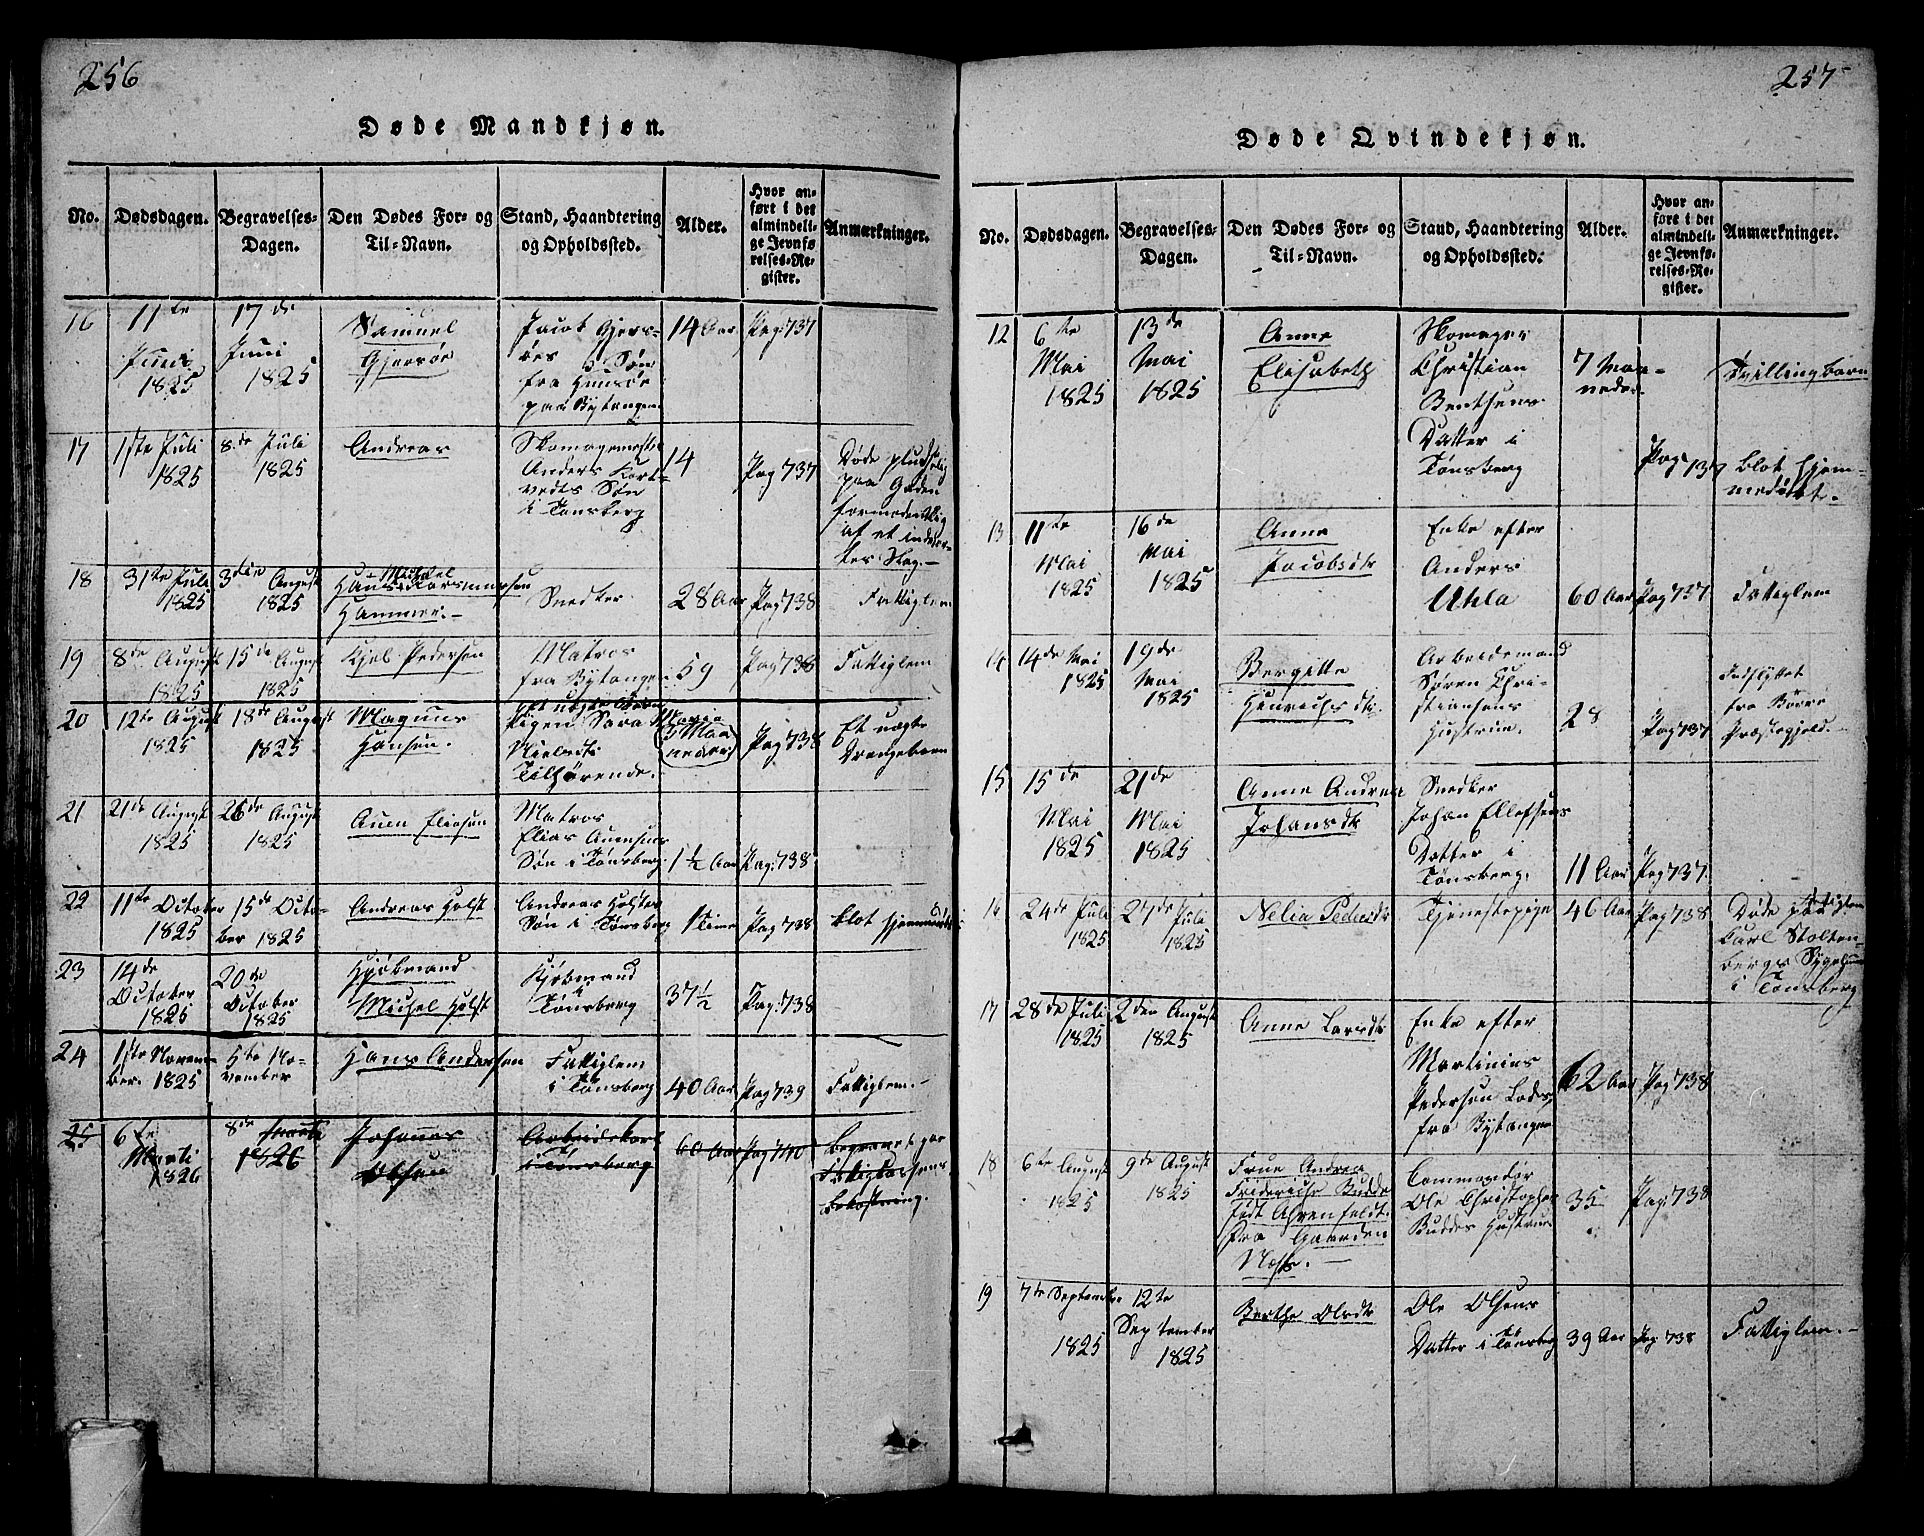 256
Døde Mandkjøn.
No. Dødsdagen. Begravelses-Dagen. Den Dødes For- og Til-Navn. Stand, Haandtering og Opholdssted. Alder. Hvor anført i det almindelige Jevnførelses-Register. Anmærkninger.
16 11te Juni 1825 17de Juni 1825 Samuel Gjersøe Jacob Gjersøes Søn fra Huusøe paa Bytangen 14 Aar Pag: 737
17 1ste Juli 1825 8de Juli 1825 Andreas Skomagermester Anders Kortvedts Søn i Tønsberg 14 Pag 737 Døde pludselig paa Gaden formodentlig af et indvortes Slag.-
18 31te Juli 1825 3die August 1825 Hans Michael Hammer.- Snedker 28 Aar Pag 738 Fattiglem
19 8de August 1825 15de August 1825 Kjel Pedersen Matros fra Bytangen 59 Pag 738 Fattiglem
20 12te August 1825 18de August 1825 Magnus Hansen. Pigen Sara Maria Nielsdtr Tilhørende. 3 Maaneder Pag 738 Et uægte Drengebarn
21 21de August 1825 26de August 1825 Auen Eliasen Matros Elias Auensens Søn i Tønsberg 1½ Aar Pag: 738
22 11te October 1825 15de October 1825 Andreas Holst Andreas Holstes Søn i Tønsberg 1 Time Pag 738 blot hjemmedøbt
23 14de October 1825 20de October 1825 Kjøbmand Michel Holst Kjøbmand i Tønsberg 37½ Pag: 738
24 1ste November. 1825 5te November Hans Andersen Fattiglem i Tønsberg 40 Aar Pag 739 Fattiglem.-
25 6te Marti 1826 8de Marti 1826 Johannes Olsen Arbeidskarl i Tønsberg 60 Aar Pag 740 Begravet paa Fattigkassens Bekostning.
257
Døde Qvindekjøn.
No. Dødsdagen. Begravelses-Dagen. Den Dødes For- og Til-Navn. Stand, Haandtering og Opholdssted. Alder. Hvor anført i det almindelige Jevnførelses-Register. Anmærkninger.
12 6te Mai 1825 13de Mai 1825 Anne Elisabeth Skomager Christian Bentsens Datter i Tønsberg 7 Maaneder Pag 737 Tvillingbarn blot hjemmedøbt.-
13 11te Mai 1825 16de Mai 1825 Anne Jacobsdtr Enke efter Anders Uhla 60 Aar Pag 737 Fattiglem
14 14de Mai 1825 19de Mai 1825 Bergitte Hinrichsdtr. Arbeidsmand Søren Christiansens Hustrue. 28 Pag 737 Indflyttet fra Borre Præstegjeld.-
15 15de Mai 1825 21de Mai 1825 Anne Andrea Johansdtr Snedker Johan Ellefsens Datter i Tønsberg. 11 Aar Pag 737.
16 24de Juli 1825 27de Juli 1825 Nelia Pedersdtr Tjenestepige 46 Aar Pag 738 Fattiglem Døde paa Carl Stoltenbergs Sygehuus i Tønsberg
17 28de Juli 1825 2den August 1825 Anne Larsdtr Enke efter Martinius Pedersen Lods fra Bytangen 62 Aar Pag 738
18 6te August 1825 9de August 1825 Frue Andrea Friderische Budde født Ahrenfeldt. fra Gaarden Næss.- Commandør Ole Christopher Buddes Hustrue 35 Pag: 738
19 7de September 1825 12te September 1825 Berthe Olsdtr Ole Olsens Datter i Tønsberg 39 Aar Pag: 738 Fattiglem.-